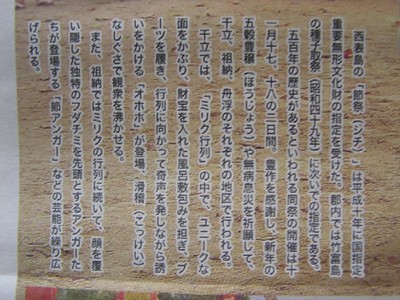 西表島の「節祭(シチン)」は平成十年に国指定
重要無形文化財の指定を受けた。郡内では竹富島
の種子取祭(昭和四十九年)に次いでの指定である。
五百年の歴史があるといわれる同祭の開催は十
一月十七、十八の二日間。豊作を感謝し、新年の
五穀豊穣(ほうじょう)や無病息災を祈願して、
干立、祖納、舟浮のそれぞれの地区で行われる。
干立では、「ミリク行列」の中で、ユニークな
面をかぶり、財宝を入れた風呂敷包みを担ぎ、ブ
ーツを履き、行列に向かって奇声を発しながら誘
いをかける「オホホ」が登場、滑稽(こっけい)
なしぐさで観衆を沸かせる。
また、祖納ではミリクの行列に続いて、顔を覆
い隠した独特のフダチミを先頭とするアンガーた
ちが登場する「節アンガー」などの芸能が繰り広
げられる。